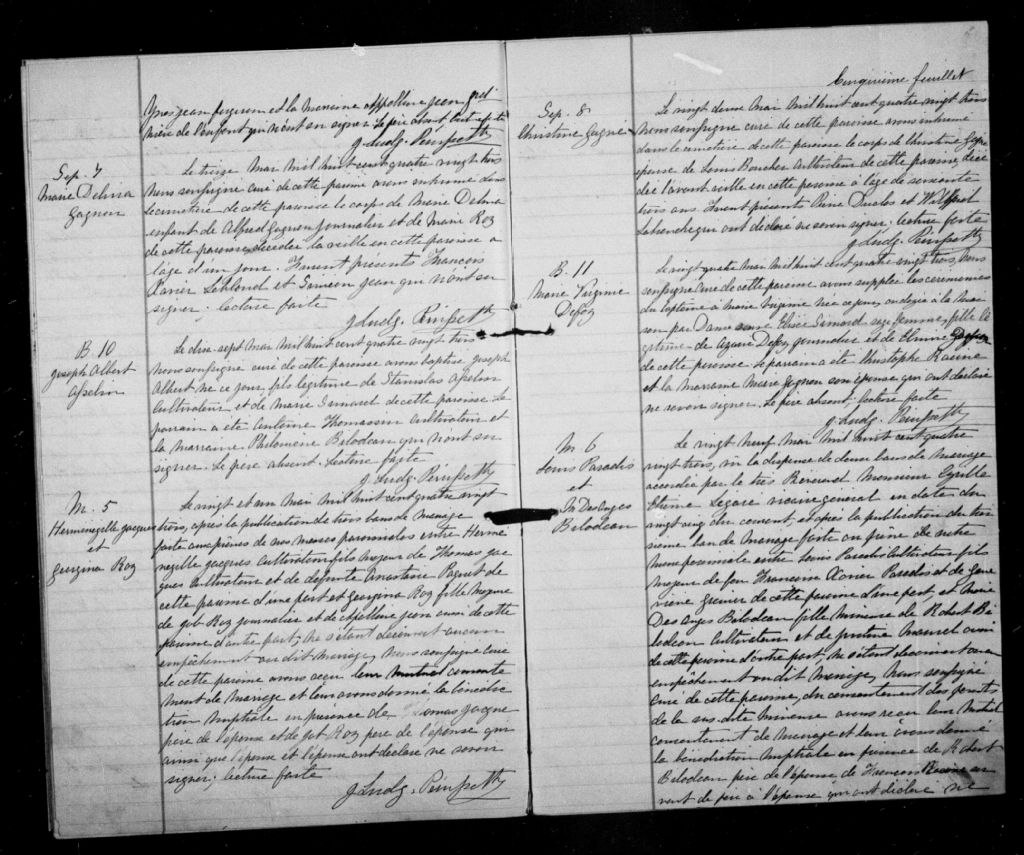 jean et la Marraine Appolline jean
mère de l'enfant qui n'ont su signer. Le père absent
J Ludg.
Sep. 7
Marie Delvina
Gagnon
Le treize Mai mil huit cent quatre vingt trois
Nous soussigné curé de cette paroisse avons inhumé dans
le cimetière de cette paroisse le corps de Marie Delvina
enfant de Alfred Gagnon journalier et de Marie Roy
de cette paroisse décédée la veille en cette paroisse a
l'age d'un jour. Furent présents François
Xavier Leblond et jean qui n'ont su
signer. Lecture faite
J Ludg.
B. 10
joseph Albert
Asselin
Le dix-sept Mai mil huit cent quatre vingt trois
Nous soussigné curé de cette paroisse avons baptisé joseph
Albert né ce jour, fils legitime de Stanislas Asselin
Cultivateur et de Marie Simard de cette paroisse Le
parrain a été Antoine Thomassin Cultivateur et
la Marraine Philomène Bilodeau qui n'ont su
signer. Le père absent. Lecture faite
J Ludg.
M. 5
Herménégilde jacques
et
Georgina Roy
Le vingt et un Mai mil huit cent quatre vingt
trois, après la publication de trois bans de mariage
faite aux prônes de nos messes paroissiales entre Hermé
négilde jacques Cultivateur fils majeur de Thomas jac
ques Cultivateur et de défunte Anastasie Paquet de
cette paroisse d'une part et Georgina Roy fille mineure
de job Roy journalier et de Appolline jean aussi de cette
paroisse d'autre part; ne s'étant découvert aucun
empêchement au dit mariage, Nous soussigné Curé
de cette paroisse avons reçu leur mutuel consente
ment de Mariage et leur avons donné la bénédic
tion nuptiale en présence de Thomas jacques
père de l'époux et de job Roy père de l'épouse qui
ainsi que l'époux et l'épouse ont déclaré ne savoir
signer; lecture faite
J Ludg.
Cinquième feuillet
Sep. 8
Christine Gagné
Le vingt deux Mai mil huit cent quatre vingt trois
Nous soussigné curé de cette paroisse avons inhumé
dans le cimetière de cette paroisse le corps de Christine Gagné
épouse de Louis Boucher Cultivateur de cette paroisse, décé
dée l'avant veille en cette paroisse à l'age de soixante
trois ans. Furent présents Pierre et Wilfrid
qui ont déclaré ne savoir signer. Lecture faite
J Ludg.
B. 11
Marie Virginie
Defoy
Le vingt quatre Mai mil huit cent quatre vingt trois, Nous
soussigné Curé de cette paroisse avons supplée les cérémonies
du baptême à Marie Virginie née ce jour, ondoyée à la mai
son par Dame Simard sage femme, fille lé
gitime de Azarie Defoy journalier et de
de cette paroisse. Le parrain a été Christophe Racine
et la marraine Marie Gagnon son épouse qui ont déclaré
ne savoir signer. Le père absent. Lecture faite
J Ludg.
M. 6
Louis Paradis
et
M. Des Anges
Bilodeau
Le vingt neuf Mai mil huit cent quatre
vingt trois, vu la dispense de deux bans de mariage
accordée par le très Révérend Monsieur Cyrille
Etienne Légaré vicaire général en date du
vingt cinq du courant, et après la publication du troi
sième ban de mariage faite au prône de notre
messe paroissiale entre Louis Paradis Cultivateur fils
majeur de feu François Xavier Paradis et de Gene
viève Grenier de cette paroisse d'une part, et Marie
Des Anges Bilodeau fille mineure de Robert Bi
lodeau Cultivateur et de aussi
de cette paroisse d'autre part, ne s'étant découvert aucun
empêchement au dit mariage, Nous soussigné
Curé de cette paroisse, du consentement des parents
de la sus-dite mineure avons reçu leur mutuel
consentement de Mariage et leur avons donné
la bénédiction nuptiale en présence de Robert
Bilodeau père de l'épouse de François Racine ser
vant de père à l'époux qui ont déclaré ne